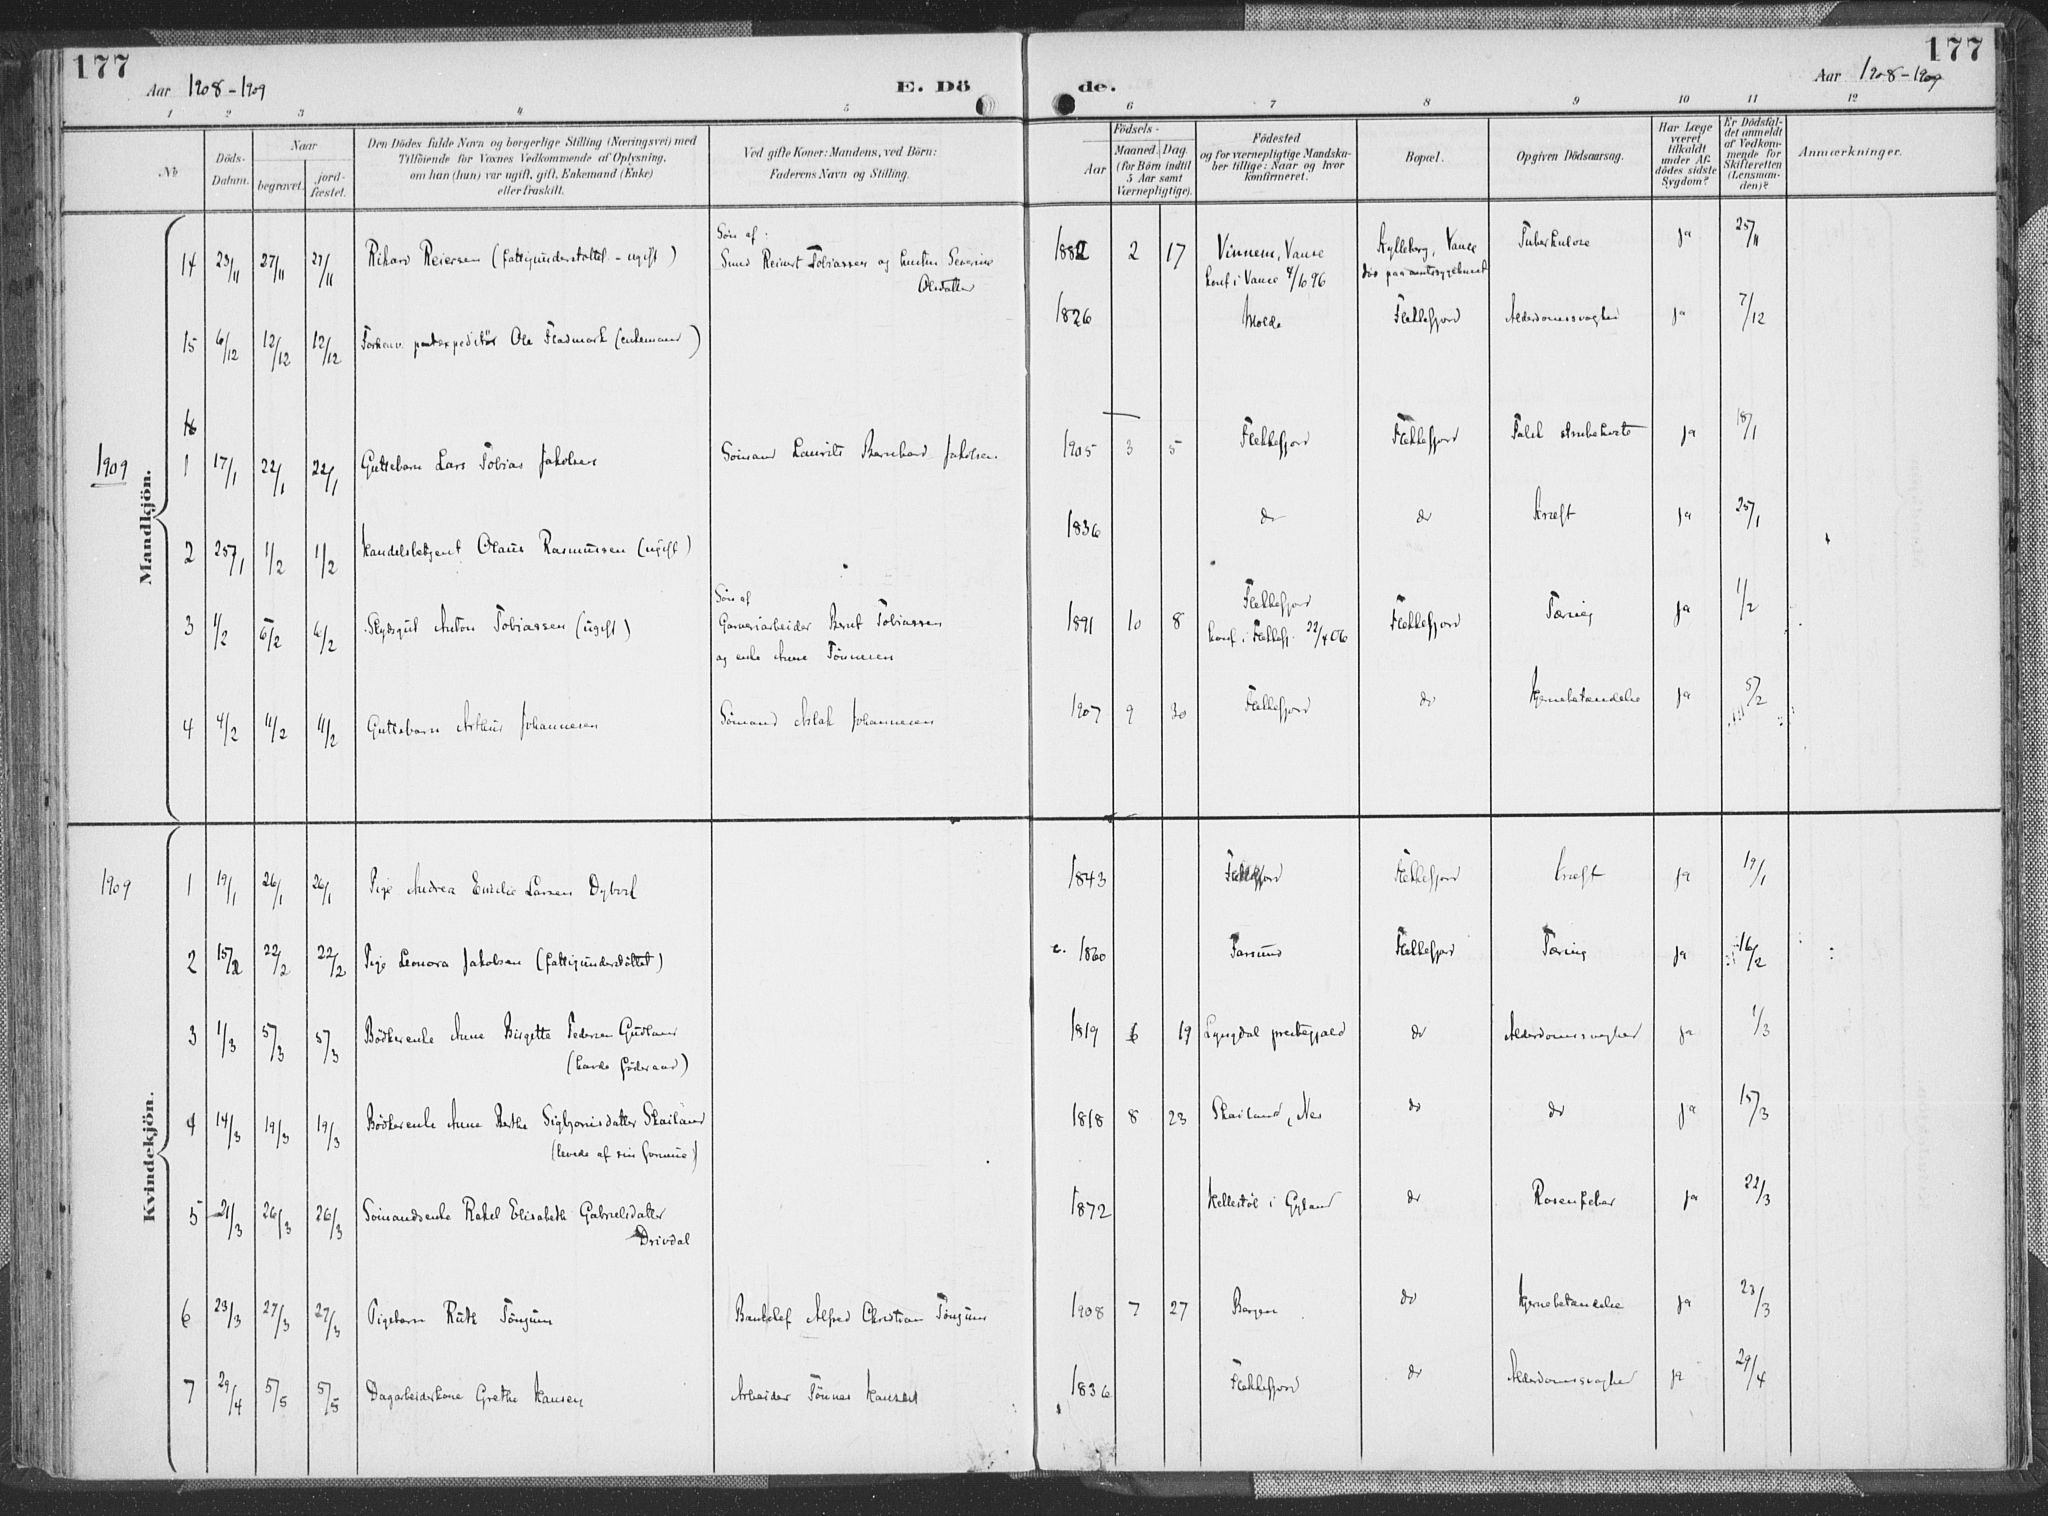 177
Aar 1908-1909
E. Dö
de.
Aar 1908-1909
177
1 2 3 4 5 6 7 8 9 10 11 12
No
Döds-Datum.
Naar
begravet.
jordfæstet.
Den Dödes fulde Navn og borgerlige Stilling (Næringsvei) med
Tilföiende for Voxnes Vedkommende af Oplysning,
om han (hun) var ugift, gift, Enkemand (Enke)
eller fraskilt.
Ved gifte Koner: Mandens, ved Börn:
Faderens Navn og Stilling.
Födsels-
Aar
Maaned. Dag.
(for Börn indtil
5 Aar samt
Værnepligtige).
Födested
og for værnepligtige Mandska-
ber tillige: Naar og hvor
konfirmeret.
Bopæl.
Opgiven Dödsaarsag.
Har Læge
været
tilkaldt
under Af-
dödes sidste
Sygdom?
Er Dödsfal-
det anmeldt
af Vedkom-
mende for
Skifteretten
(Lensman-
den)?
Anmærkninger.
Mandkjön.
14 23/11 27/11 27/11 Rikard Reiersen (fattigunderstøttet - ugift) Søn af: Smed Reinert Tobiassen og hustru Severine Olsdatter 1882 2 17 Vinnem, Vanse konf i Vanse 4/10 96 Kylleberg, Vanse død paa amtssygehuset Tuberkulose ja 25/11
15 6/12 12/12 12/12 Forhenv. postexpeditør Ole Fladmark (enkemand) 1826 Molde Flekkefjord Alderdomssvaghed ja 7/12
1909
1 17/1 22/1 22/1 Guttebarn Lars Tobias Jakobsen Sømand Laurits Bernhard Jakobsen 1905 3 5 Flekkefjord Flekkefjord Falsk strubehoste ja 18/1
2 25/1 1/2 1/2 Handelsbetjent Olaus Rasmussen (ugift) 1836 do do kræft ja 25/1
3 1/2 6/2 6/2 Skydsgut Anton Tobiassen (ugift) Søn af Garveriarbeider Bernt Tobiassen og enke Anne Tønnesen 1891 10 8 Flekkefjord konf i Flekkefj. 22/4 06 Flekkefjord Tæring ja 1/2
4 4/2 11/2 11/2 Guttebarn Arthur Johannesen Sømand Aslak Johannesen 1907 9 30 Flekkefjord do Hjernebetændelse ja 5/2
Kvindekjön.
1909
1 19/1 26/1 26/1 Pige Andrea Emilie Larsen Dybvol 1843 Flekkefjord Flekkefjord kræft ja 19/1
2 15/2 22/2 22/2 Pige Leonora Jakobsen (fattigunderstøttet) c. 1860 Farsund Flekkefjord Tæring ja 16/2
3 1/3 5/3 5/3 Bødkerenke Anne Birgitte Pedersen Gudland (havde föderaad) 1819 6 19 Lyngdal prestegjæld do Alderdomssvaghed ja 1/3
4 14/3 19/3 19/3 Bødkerenke Anne Berthe Sigbjørnsdatter Skailand (levede af sin formue) 1818 8 23 Skailand, Nes do do ja 15/3
5 21/3 26/3 26/3 Sømandsenke Rakel Elisabeth Gabrielsdatter Drivdal 1872 Hellestøl i Gyland do Rosenfeber ja 22/3
6 23/3 27/3 27/3 Pigebarn Ruth Tønjum Bankchef Alfred Christian Tønjum 1908 7 27 Bergen do Hjernebetændelse ja 23/3
7 29/4 5/5 5/5 Dagarbeiderkone Grethe Hansen Arbeider Tønnes Hansen 1836 Flekkefjord do Alderdomssvaghed ja 29/4